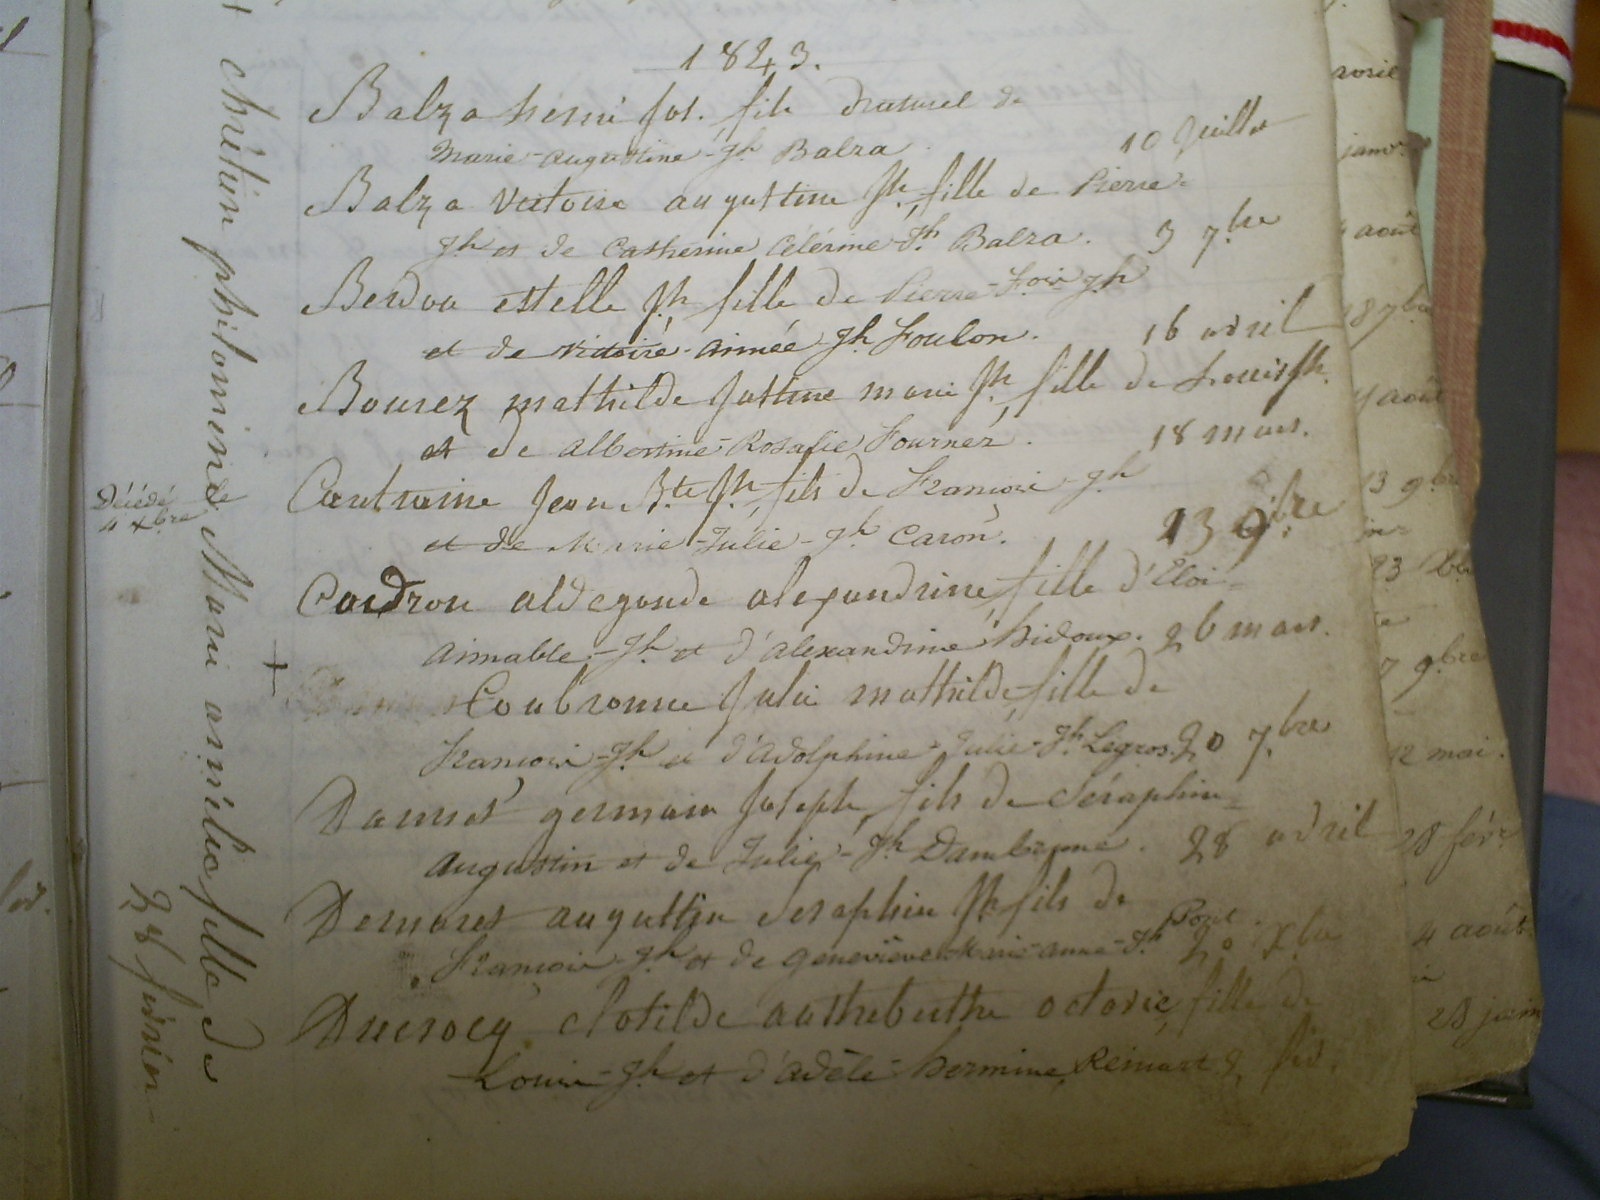 1843.
Balza henri Jos. fils naturel de
Marie-Augustine-Jh Balza. 10 Juillet
Balza Victoire augustine Jh. fille de Pierre-
Jh et de Catherine Célérine Jh Balza. 3 7.bre
Berdou estelle Jh. fille de Pierre-Fois Jh
et de Victoire-Aimée-Jh Foulon. 16 avril
Bourez mathilde Justine marie Jh. fille de Louis Jh.
et de Albertine-Rosalie Fournez. 18 mars.
Contraine Jean Bte Jh. fils de François-Jh
et de Marie-Julie-Jh Caron. 23 9.bre
Décédé
4 xbre
Coidron aldegonde alexandrine, fille d'Eloi-
Aimable-Jh et d'Alexandrine hidoux. 26 mars.
+
Coubronne Julie mathilde, fille de
François-Jh et d'Adolphine-Julie-Jh Legros. 20 7.bre
germain Joseph, fils de Séraphin-
Augustin et de Julie-Jh Dambrune. 28 avril
augustin Seraphin Jh. fils de
François-Jh et de Geneviève Marie-anne-Jh Pozit. 20 xbre
Ducrocq Clotilde octavie, fille de
Louis-Jh et d'Adèle-hermine Reinart
chrétien philominde Marie fille de
28 février
avril
janv.
août
18 7bre
août
13 9bre
23
7 9bre
12 mai.
28 févr
4 août
28 juin